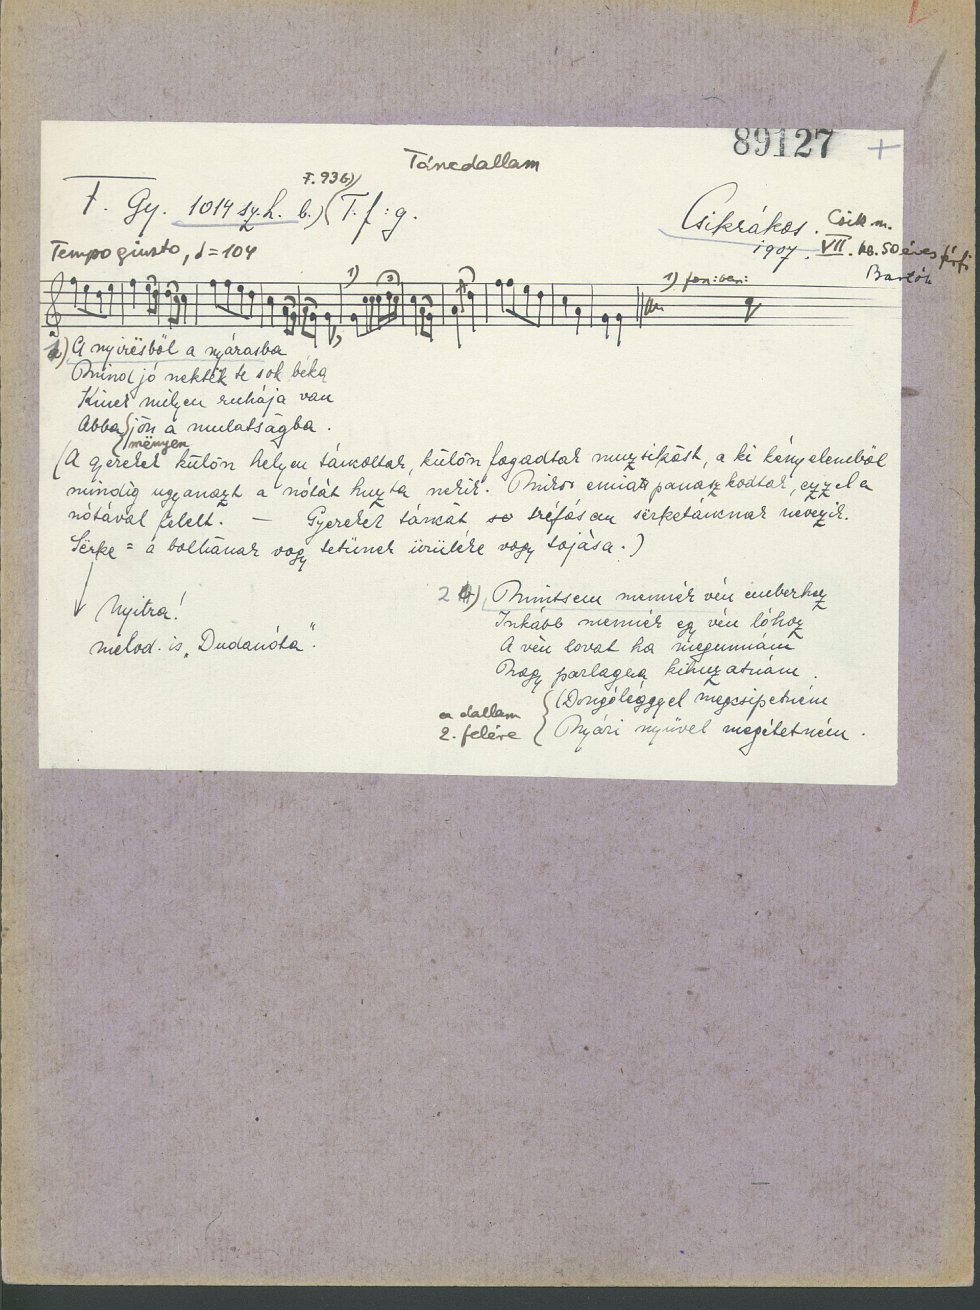 89127 +
Táncdallam
F. 936)
F. Gy. 1014 sz. h. b.) (T. f: g.
Csikrákos. Csik m.
1907. VII. kb. 50 éves férfi
Bartók
Tempo giusto, = 104
1) 3 1) fon:ban:
A nyirësből a nyárasba
Mind jó nektëk te sok béka
Kinek milyen ruhája van
Abba jön a mulatságba.
mënyen
(A gyerekek külön helyen táncoltak, külön fogadtak muzsikást, a ki kényelemből
mindig ugyanazt a nótát huzta nekik. Mikor emiatt panaszkodtak, ezzel a
nótával felelt. — Gyerekek táncát tréfásan sërketáncnak nevezik.
Sërke = a bolhának vagy tetünek ürüléke vagy tojása.)
Nyitra!
melod. is „Dudanóta".
2 ) Mintsem mennék vén emberhez
Inkább mennék egy vén lóhoz
A vén lovat ha megunnám
Nagy parlagra kihuzatnám.
(Dongóléggyel mëgcsipetném
a dallam
2. felére
Nyári nyüvel mëgétetném.